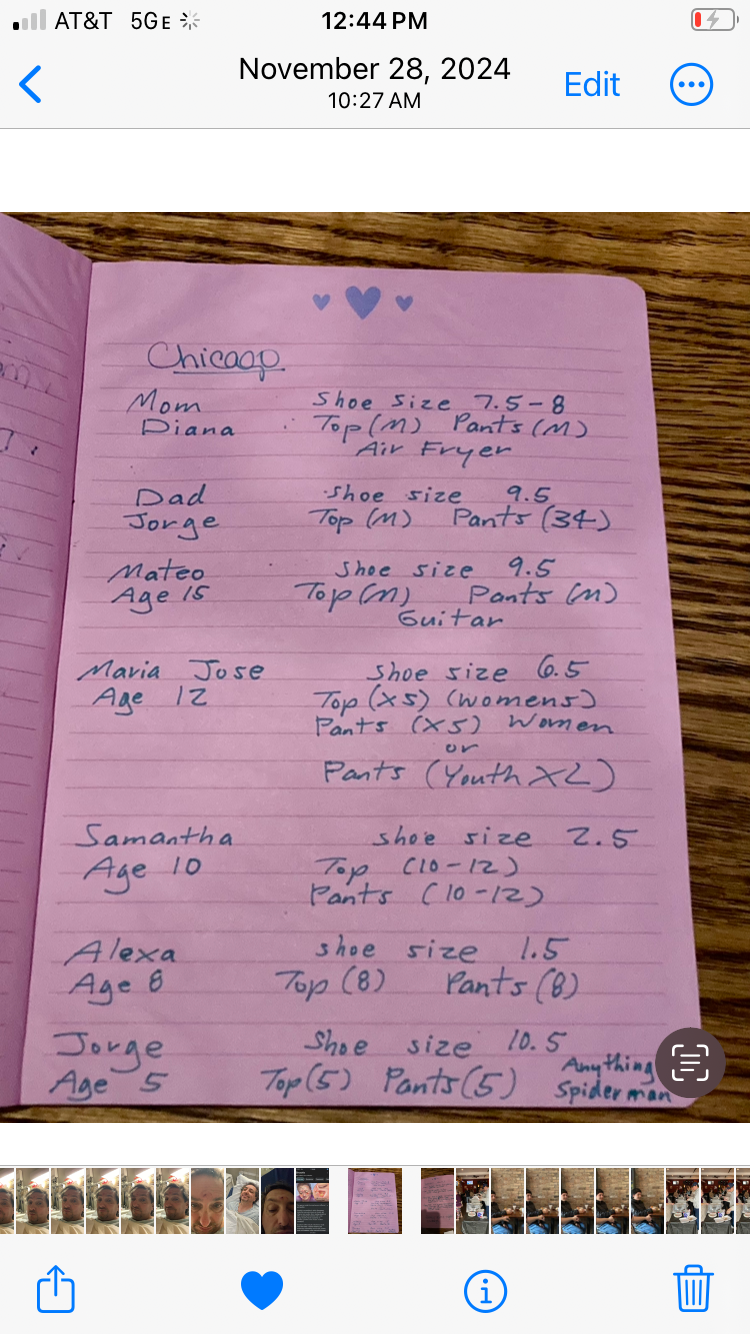 AT&T 5GE 12:44 PM
November 28, 2024
10:27 AM
Edit
Chicago
Mom Shoe size 7.5-8
Diana Top (M) Pants (M)
Air Fryer
Dad Shoe size 9.5
Jorge Top (M) Pants (34)
Mateo Shoe size 9.5
Age 15 Top (M) Pants (M)
Guitar
Maria Jose Shoe size 6.5
Age 12 Top (XS) (womens)
Pants (XS) Women
or
Pants (Youth XL)
Samantha shoe size 2.5
Age 10 Top (10-12)
Pants (10-12)
Alexa shoe size 1.5
Age 8 Top (8) Pants (8)
Jorge Shoe size 10.5
Age 5 Top (5) Pants (5) Anything
Spiderman